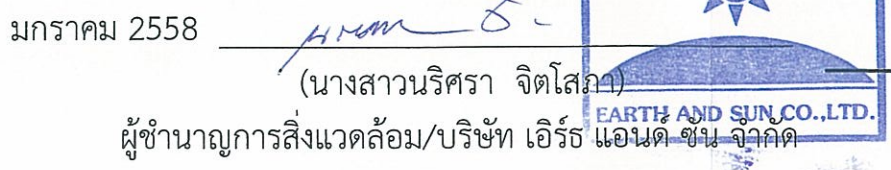 มกราคม 2558
(นางสาวนริศรา จิตโสภา)
EARTH AND SUN CO.,LTD.
ผู้ชำนาญการสิ่งแวดล้อม/บริษัท เอิร์ธ แอนด์ ซัน จำกัด